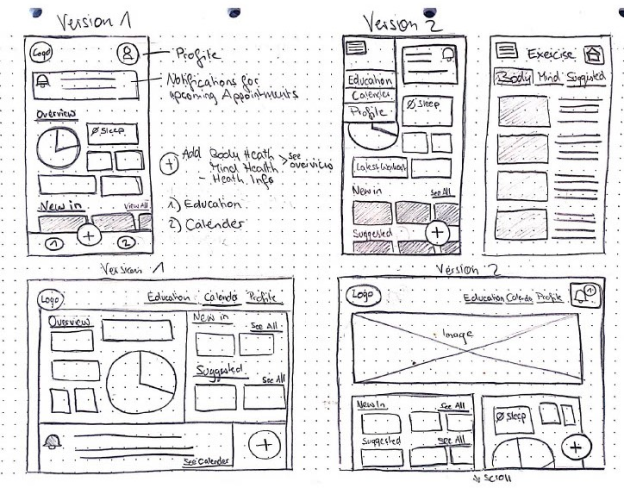 Version 1
Logo
Profile
Notifications for
upcoming Appointments
Overview
Ø Sleep
+ Add Body Heath
Mind Health
- Heath Info
> see
overview
New in
View All
1) Education
2) Calender
1
+
2
Version 2
Education
Calender
Profile
Ø Sleep
Latest Workouts
New in
See All
Suggested
+
Exercise
Body Mind Suggested
Version 1
Logo
Education Calender Profile
Overview
New in
See All
Suggested
See All
See Calender
+
Version 2
Logo
Education Calender Profile
1
Image
New in
See All
Suggested
See All
Ø Sleep
+
Scroll